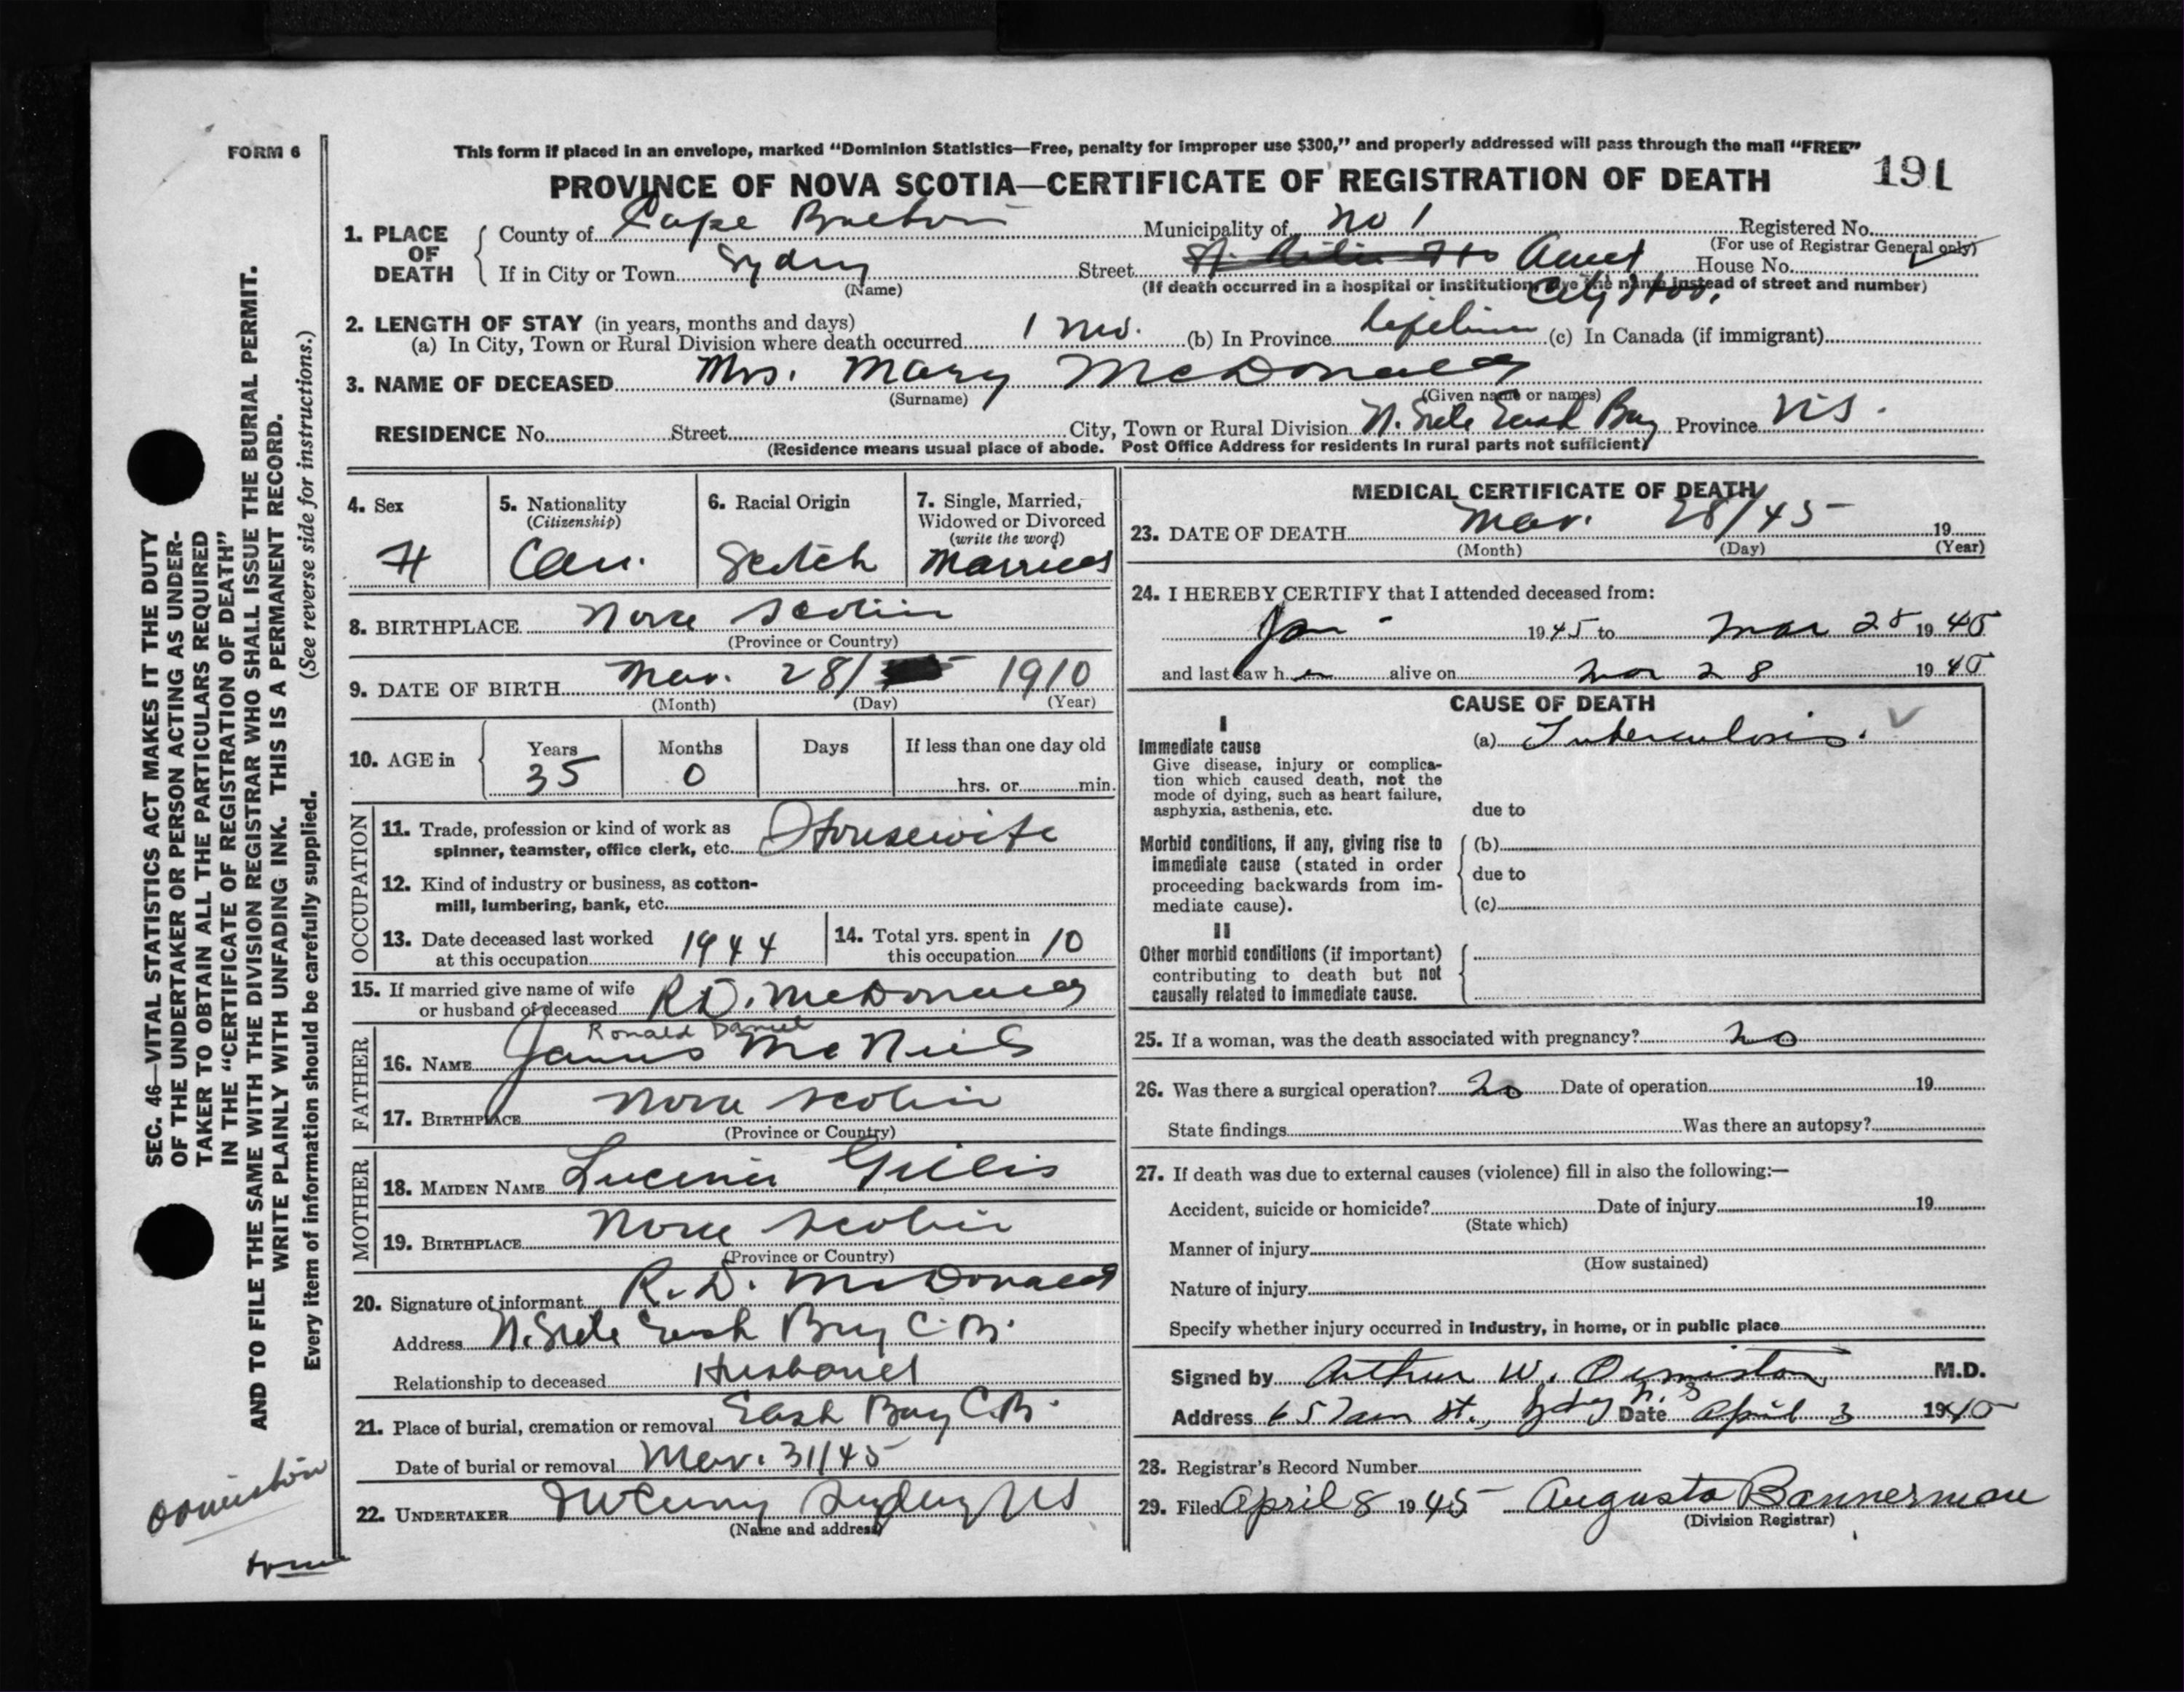 FORM 6
This form if placed in an envelope, marked "Dominion Statistics—Free, penalty for improper use $300," and properly addressed will pass through the mail "FREE"
PROVINCE OF NOVA SCOTIA—CERTIFICATE OF REGISTRATION OF DEATH
191
1. PLACE OF DEATH
County of Cape Breton Municipality of No 1 Registered No.
(For use of Registrar General only)
If in City or Town Sydney Street House No.
(Name) (If death occurred in a hospital or institution, give the name instead of street and number)
City Hos.
2. LENGTH OF STAY (in years, months and days)
(a) In City, Town or Rural Division where death occurred 1 mo. (b) In Province lifetime (c) In Canada (if immigrant)
3. NAME OF DECEASED Mrs. Mary McDonald
(Surname) (Given name or names)
RESIDENCE No. Street City, Town or Rural Division N. Side East Bay Province N.S.
(Residence means usual place of abode. Post Office Address for residents in rural parts not sufficient)
4. Sex
F
5. Nationality
(Citizenship)
Can.
6. Racial Origin
Scotch
7. Single, Married,
Widowed or Divorced
(write the word)
Married
8. BIRTHPLACE Nova Scotia
(Province or Country)
9. DATE OF BIRTH Mar. 28/ 1910
(Month) (Day) (Year)
10. AGE in
Years Months Days If less than one day old
35 0 hrs. or min.
OCCUPATION
11. Trade, profession or kind of work as
spinner, teamster, office clerk, etc. Housewife
12. Kind of industry or business, as cotton-
mill, lumbering, bank, etc.
13. Date deceased last worked
at this occupation 1944
14. Total yrs. spent in
this occupation 10
15. If married give name of wife
or husband of deceased R.D. McDonald
Ronald Daniel
FATHER
16. NAME James McNeil
17. BIRTHPLACE Nova Scotia
(Province or Country)
MOTHER
18. MAIDEN NAME Gillis
19. BIRTHPLACE Nova Scotia
(Province or Country)
20. Signature of informant R. D. McDonald
Address N. Side East Bay C.B.
Relationship to deceased Husband
21. Place of burial, cremation or removal East Bay C.B.
Date of burial or removal Mar. 31/45
22. UNDERTAKER Sydney NS
(Name and address)
MEDICAL CERTIFICATE OF DEATH
23. DATE OF DEATH Mar. 28/45 19
(Month) (Day) (Year)
24. I HEREBY CERTIFY that I attended deceased from:
Jan - 1945 to Mar 28 1945
and last saw h er alive on Mar 28 1945
CAUSE OF DEATH
I
Immediate cause
Give disease, injury or complica-
tion which caused death, not the
mode of dying, such as heart failure,
asphyxia, asthenia, etc.
(a) Tuberculosis.
due to
Morbid conditions, if any, giving rise to
immediate cause (stated in order
proceeding backwards from im-
mediate cause).
(b)
due to
(c)
II
Other morbid conditions (if important)
contributing to death but not
causally related to immediate cause.
25. If a woman, was the death associated with pregnancy? no
26. Was there a surgical operation? no Date of operation 19
State findings Was there an autopsy?
27. If death was due to external causes (violence) fill in also the following:—
Accident, suicide or homicide? Date of injury 19
(State which)
Manner of injury
(How sustained)
Nature of injury
Specify whether injury occurred in industry, in home, or in public place
Signed by Arthur W. Ormiston M.D.
Address St., Sydney N.S Date April 3 1945
28. Registrar's Record Number
29. Filed April 8 1945 Augusta Bannerman
(Division Registrar)
SEC. 46—VITAL STATISTICS ACT MAKES IT THE DUTY
OF THE UNDERTAKER OR PERSON ACTING AS UNDER-
TAKER TO OBTAIN ALL THE PARTICULARS REQUIRED
IN THE "CERTIFICATE OF REGISTRATION OF DEATH"
AND TO FILE THE SAME WITH THE DIVISION REGISTRAR WHO SHALL ISSUE THE BURIAL PERMIT.
WRITE PLAINLY WITH UNFADING INK. THIS IS A PERMANENT RECORD.
Every item of information should be carefully supplied. (See reverse side for instructions.)
Ormiston